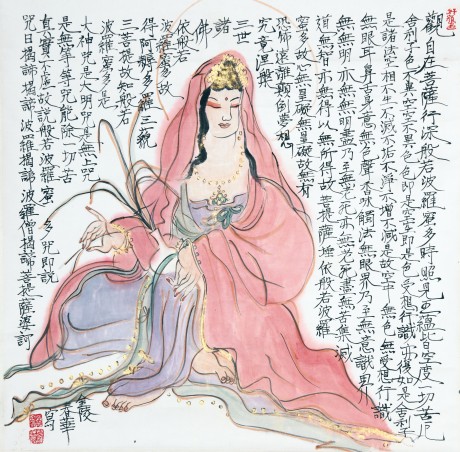 觀自在菩薩行深般若波羅蜜多時照見五蘊皆空度一切苦厄
舍利子色不異空空不異色色即是空空即是色受想行識亦復如是舍利子
是諸法空相不生不滅不垢不淨不增不減是故空中無色無受想行識
無眼耳鼻舌身意無色聲香味觸法無眼界乃至無意識界
無無明亦無無明盡乃至無老死亦無老死盡無苦集滅
道無智亦無得以無所得故菩提薩埵依般若波羅
蜜多故心無罣礙無罣礙故無有
恐怖遠離顛倒夢想
究竟涅般
三世
諸
佛
依般若
波羅蜜多故
得阿耨多羅三藐
三菩提故知般若
波羅蜜多是
大神咒是大明咒是無上咒
是無等等咒能除一切苦
真實不虛故說般若波羅蜜多咒即說
咒曰揭諦揭諦波羅揭諦波羅僧揭諦菩提薩婆訶
金陵
華
寫